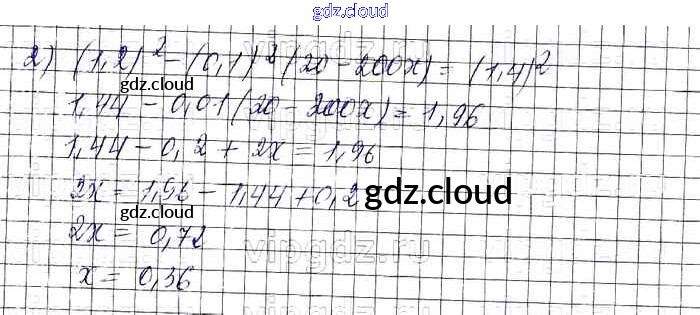 gdz.cloud
2) (1,2)² - (0,1)² (20 - 200x) = (1,4)²
gdz.cloud
1,44 - 0,01 (20 - 200x) = 1,96
1,44 - 0,2 + 2x = 1,96
2x = 1,96 - 1,44 + 0,2 gdz.cloud
gdz.cloud
2x = 0,72
vipgdz.ru
x = 0,36